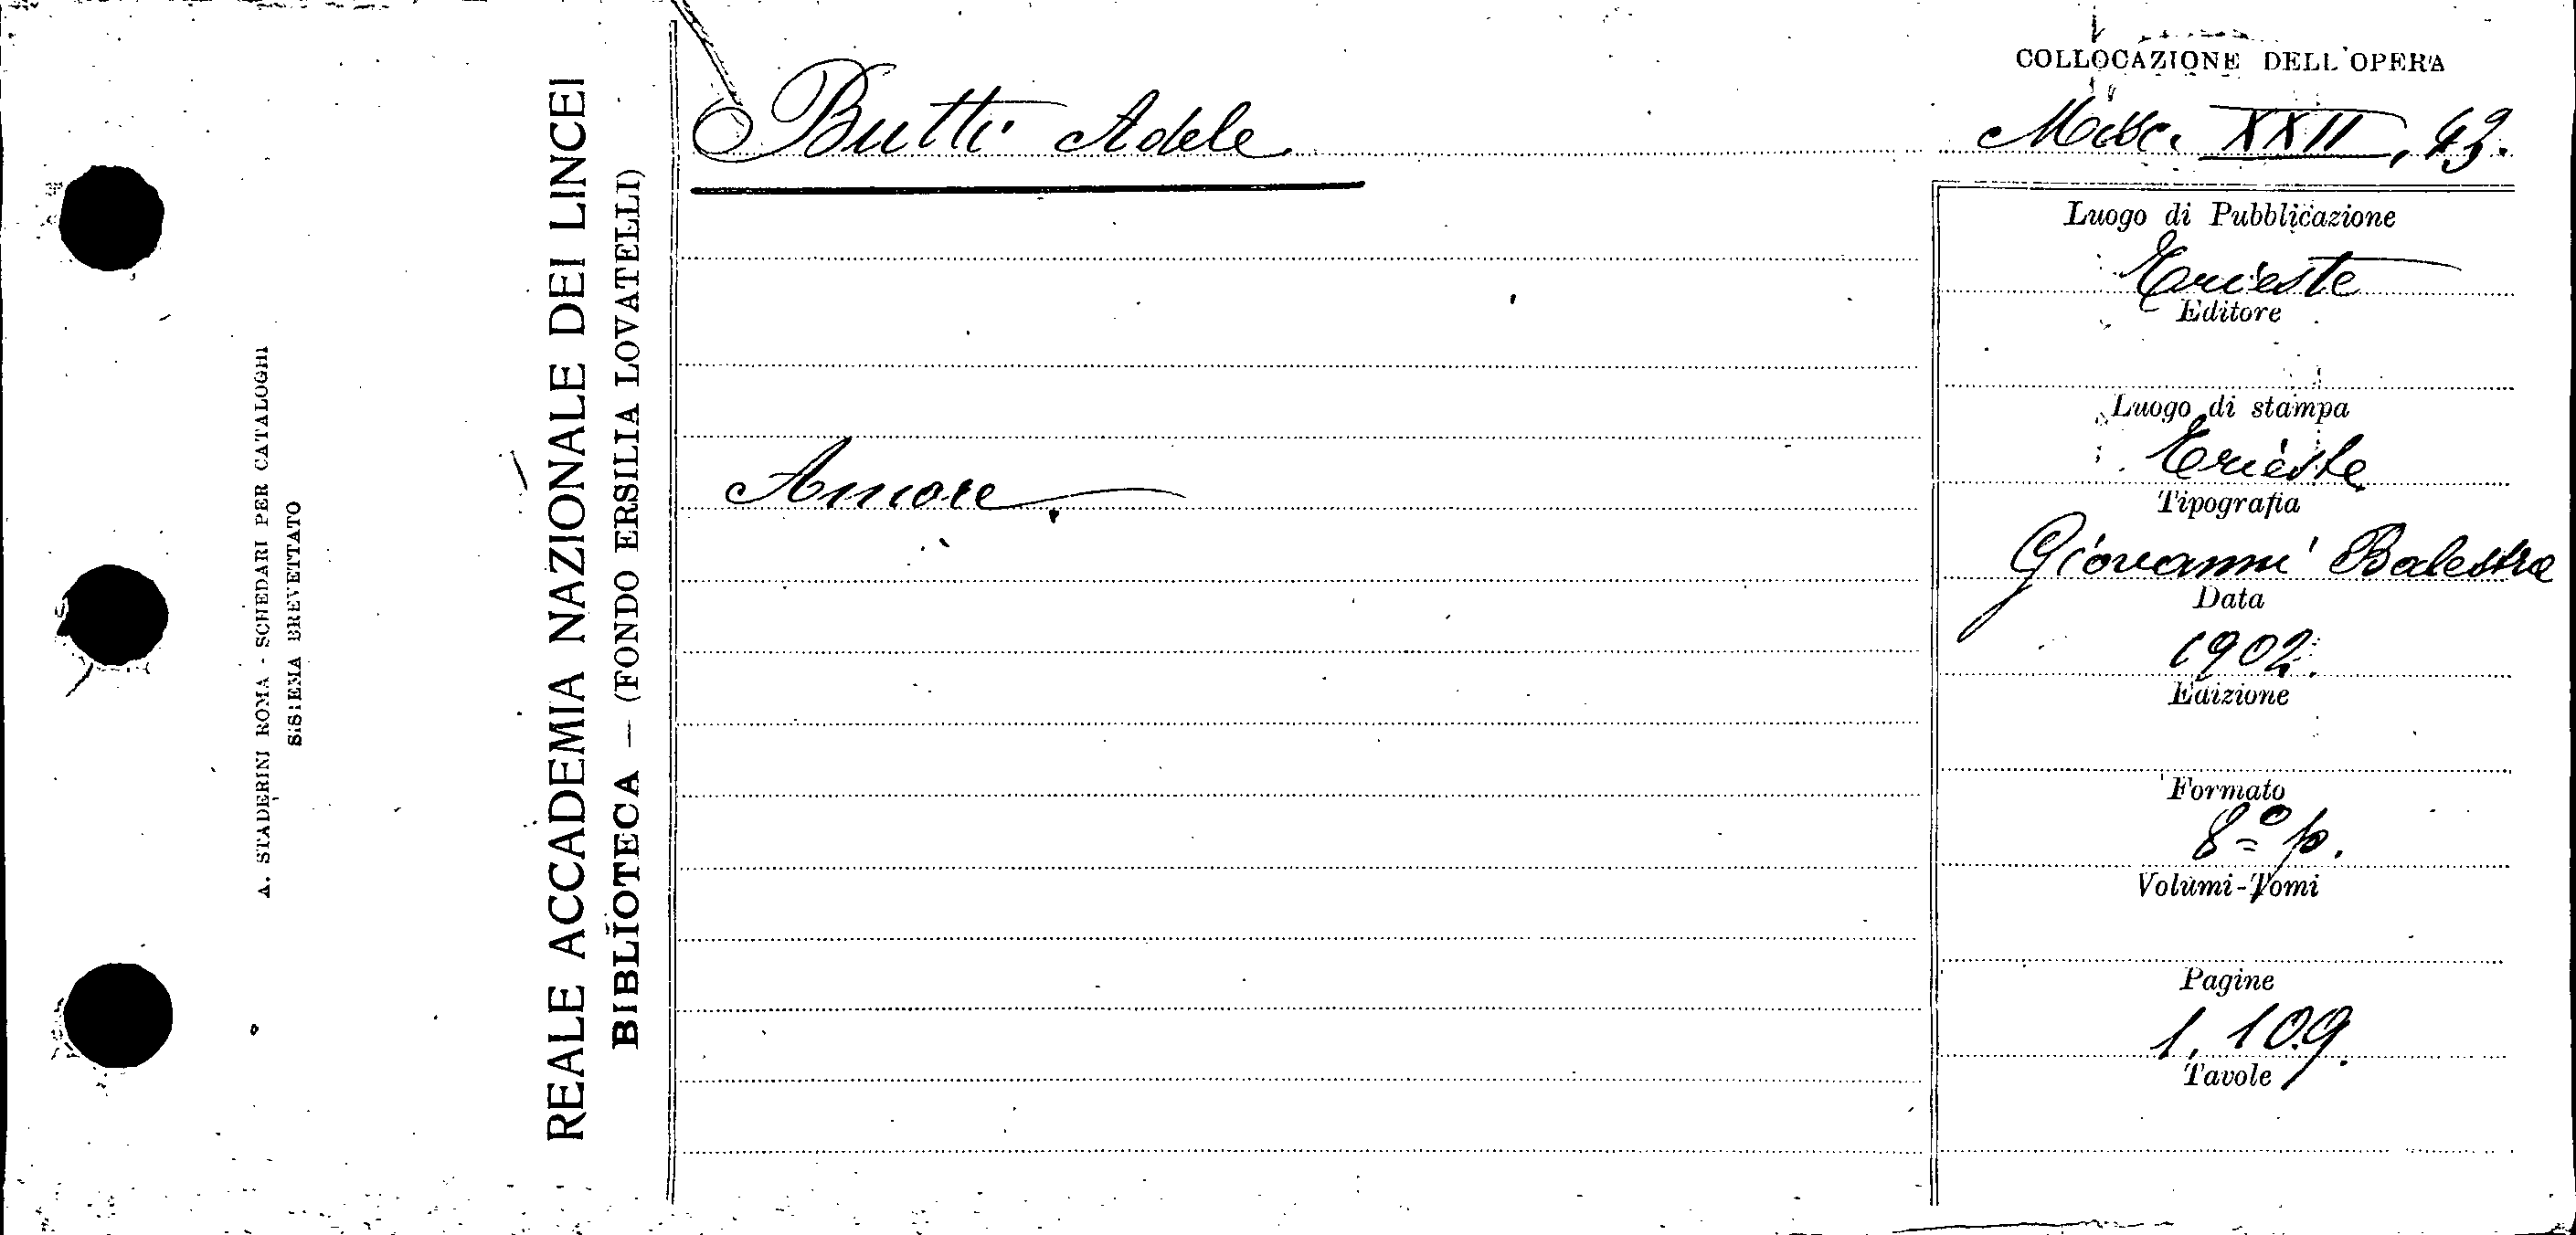 A. STADERINI ROMA - SCHEDARI PER CATALOGHI
SISTEMA BREVETTATO
REALE ACCADEMIA NAZIONALE DEI LINCEI
BIBLIOTECA — (FONDO ERSILIA LOVATELLI)
Butti Adele
Amore.
COLLOCAZIONE DELL'OPERA
Misc. XXII, 43.
Luogo di Pubblicazione
Trieste
Editore
Luogo di stampa
Trieste
Tipografia
Giovanni Balestra
Data
1902.
Edizione
Formato
8º p.
Volumi-Tomi
Pagine
1, 109.
Tavole